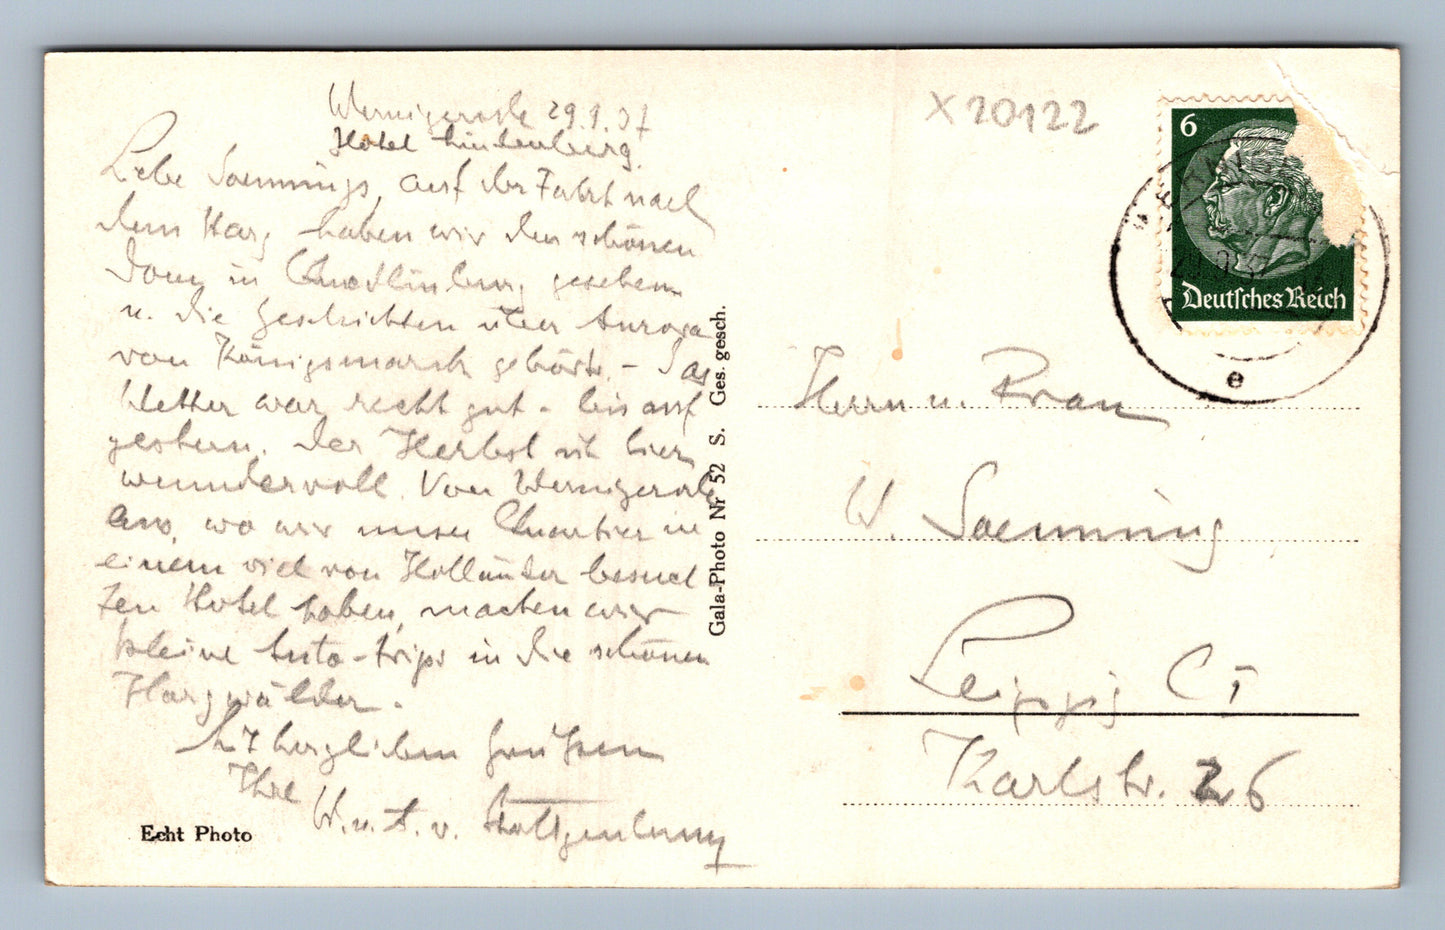 Wernigerode 29.9.37
Hotel Lindenberg.
Liebe Saemnings, auf der Fahrt nach
dem Harz haben wir den schönen
Dom in Quedlinburg gesehen
u. die Geschichten über Aurora
von Königsmarck gehört. – Das
Wetter war recht gut - bis auf
gestern. Der Herbst ist hier
wundervoll. Von Wernigerode
aus, wo wir unser Quartier in
einem viel von Holländer besuch
ten Hotel haben, machen wir
kleine Auto-trips in die schönen
Harzwälder.
Mit herzlichen Grüssen
Ihre
W. u. A. v.
Echt Photo
Gala-Photo Nr 52 S. Ges. gesch.
X20122
6
Deutsches Reich
e
Herrn u. Frau
W. Saemning
Leipzig C 1
Karlstr. 26